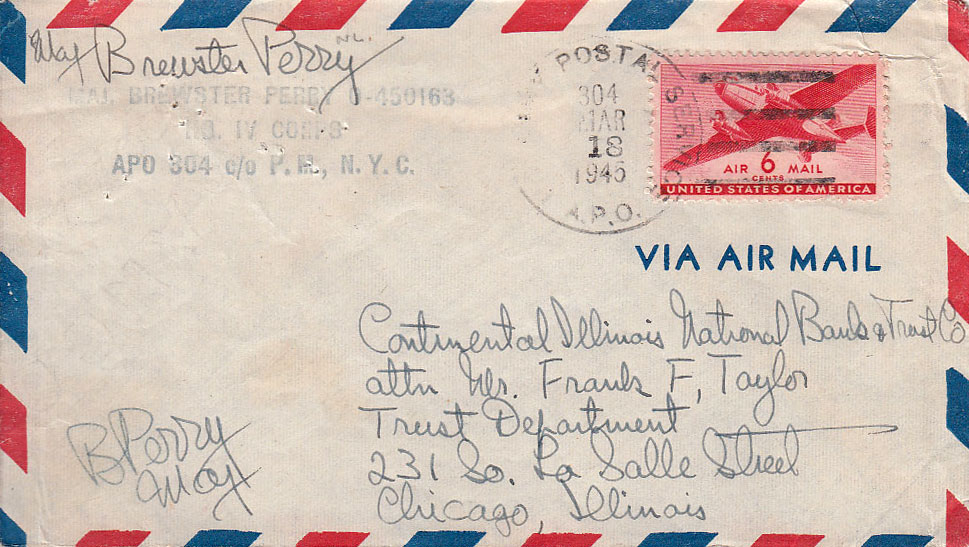 Maj Brewster Perry
MAJ. BREWSTER PERRY O-450163
HQ. IV CORPS
APO 304 c/o P. M., N. Y. C.
POSTAL SERVICE
304
MAR
18
1945
A.P.O.
AIR 6 MAIL
CENTS
UNITED STATES OF AMERICA
VIA AIR MAIL
Continental Illinois National Bank & Trust Co
attn Mr. Frank F. Taylor
Trust Department
231 So. La Salle Street
Chicago, Illinois
B Perry
Maj